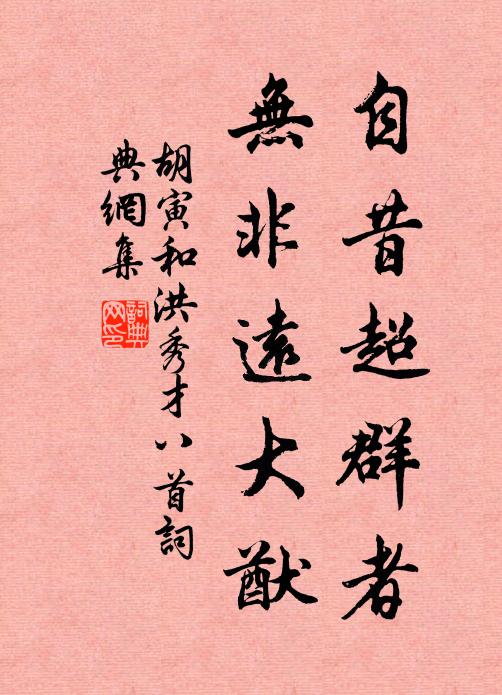 自昔超群者
無非遠大猷
胡寅和洪秀才八首詞
典網集
詞典
网印